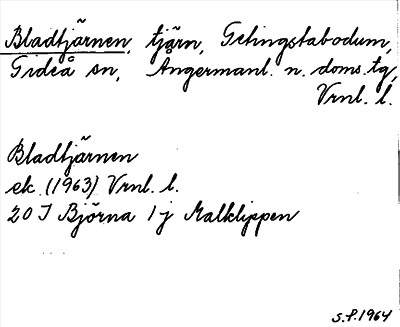 Bladtjärnen, tjärn, Getingstabodum,
Gideå sn, Ångermanl. n. doms. tg,
Vrnl. l.
Bladtjärnen
ek. (1963) Vrnl. l.
20 I Björna 1 j Malklippen
S.F. 1964